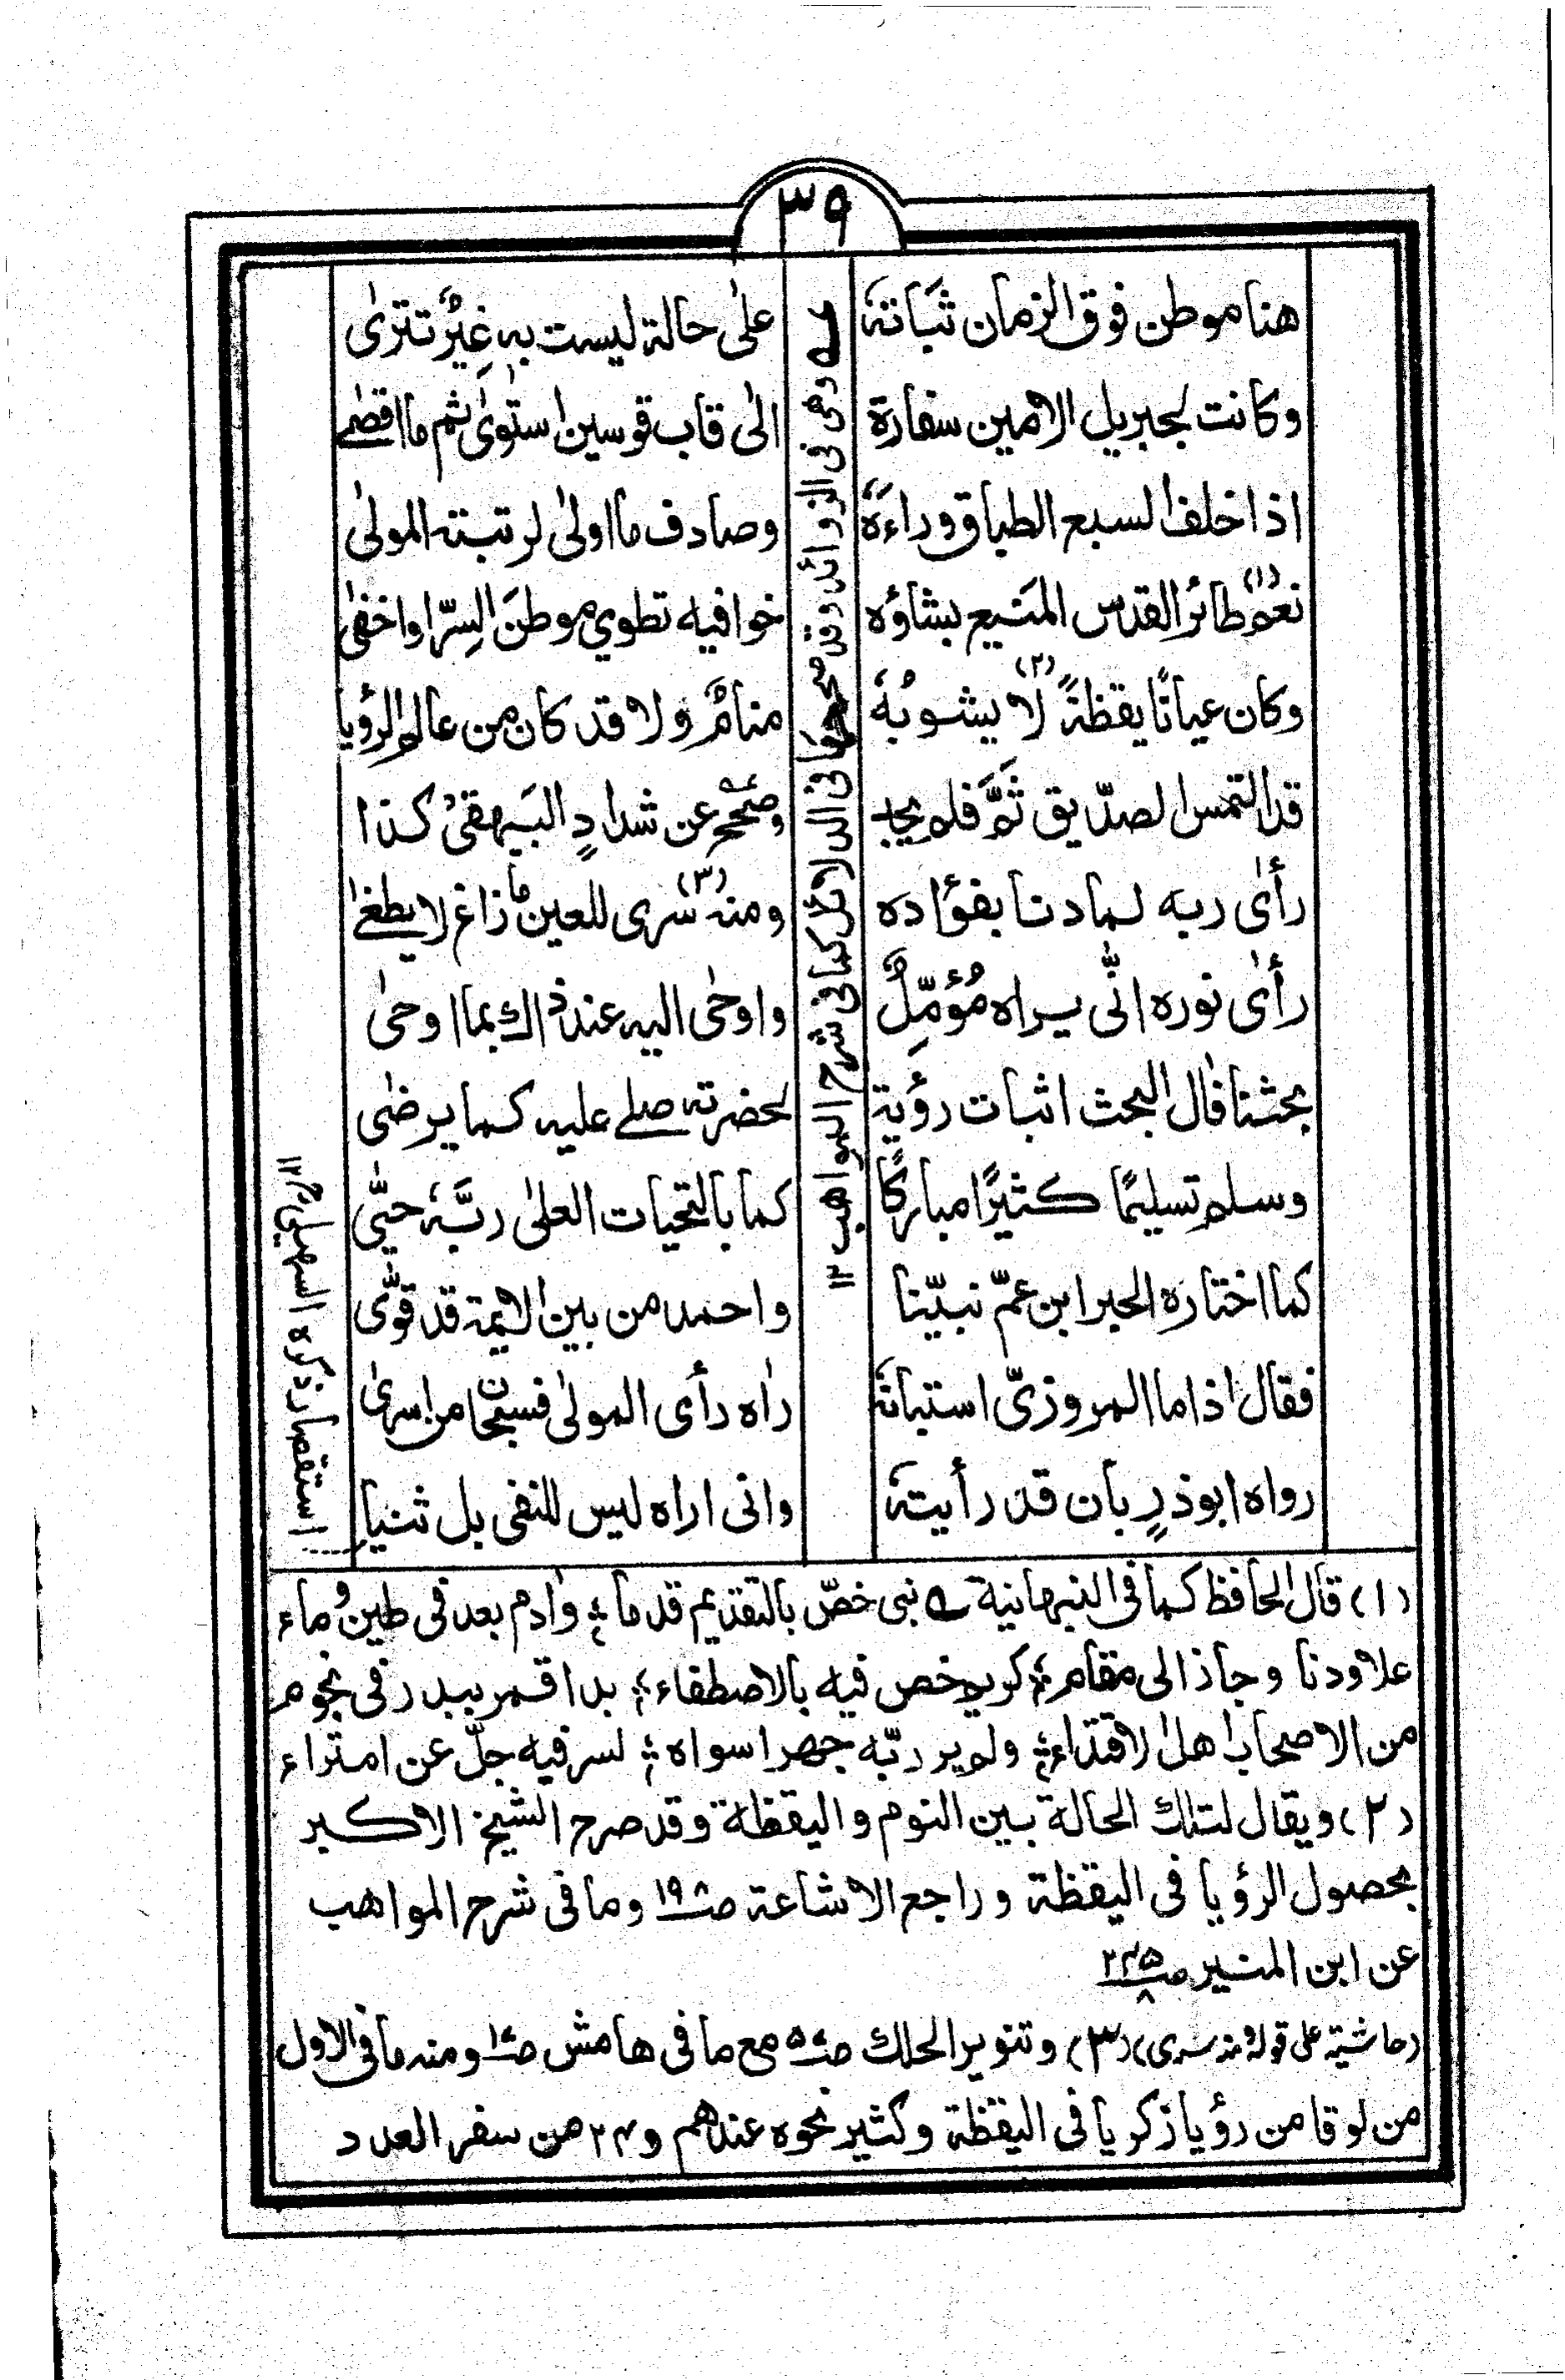 ٣٩
هنا موطن فوق الزمان ثَبَاتهٗ على حالة ليست به غِيَرٌ تترىٰ
وكانت لجبريل الامين سفارة الى قاب قوسين استوىٰ ثم ما اقصىٰ
اذا خلف السبع الطباق وراءهٗ وصادف ما اولىٰ لرتبته المولىٰ
نعم (١) طائر القدس المنيع بشاؤه خوافيه تطوي موطن السِرّ او اخفىٰ
وكان عيانًا يقظةً (٢) لا يشوبُهٗ منامٌ ولا قد كان من عالم الرؤيا
قد التمس الصدّيق ثَمَّ فلم يجد وصحّح عن شدادٍ البيهقيُ كذا
رأىٰ ربه لما دنا بفؤاده ومنه (٣) سرى للعين ما زاغ لا يطغىٰ
رأىٰ نوره انّٰى يراه مُؤمِّلٌ واوحٰى اليه عند ذاك بما اوحىٰ
بحثنا فاٰل البحث اثبات رؤية لحضرته صلے عليه كما يرضىٰ
وسلم تسليمًا كثيرًا مباركًا كما بالتحيات العلىٰ ربَّهٗ حيّٰى
كما اختاره الحبر ابن عمّ نبيّنا واحمد من بين الائمة قد قوّٰى
فقال اذا ما المروزيّ استبانهٗ راٰه رأى المولىٰ فسبحان من اسرىٰ
رواه ابو ذرٍ بان قد رأيتهٗ وانى اراه ليس للنفى بل ثنيا
وهى فى الزوائد وقد صححها فى الدلائل كما فى شرح المواهب ١٢
استقصار ذكره السهيلى ١٢
(١) قال الحافظ كما فى النبهانية ؎ نبى خصّ بالتقديم قدما ؛ واٰدم بعد فى طين وماء
علا ودنا وجاز الى مقام ؛ كريم خص فيه بالاصطفاء ؛ بدا قمر ببدر فى نجوم
من الاصحاب اهل الاقتداء ؛ ولم ير ربّه جهرا سواه ؛ لسر فيه جلّ عن امتراء
(٢) ويقال لتلك الحالة بين النوم واليقظة وقد صرح الشيخ الاكبر
بحصول الرؤيا فى اليقظة وراجع الاشاعة صـ١٩٨ وما فى شرح المواهب
عن ابن المنير صـ
(حاشية على قوله ومنه سرى) (٣) وتنوير الحلك صـ مع ما فى هامش صـ ومنه ما فى الاول
من لوقا من رؤيا زكريا فى اليقظة وكثير نحوه عندهم و٢٤ من سفر العدد